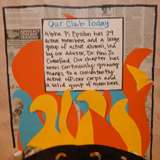 Our Club Today
Alpha Pi Epsilon has 29
active members and a large
group of active alumni, led
by our advisor, Dr. Paul J.
Crawford. Our chapter has
been continuously growing
thanks to a consistently
active officer corps and
a solid group of members.